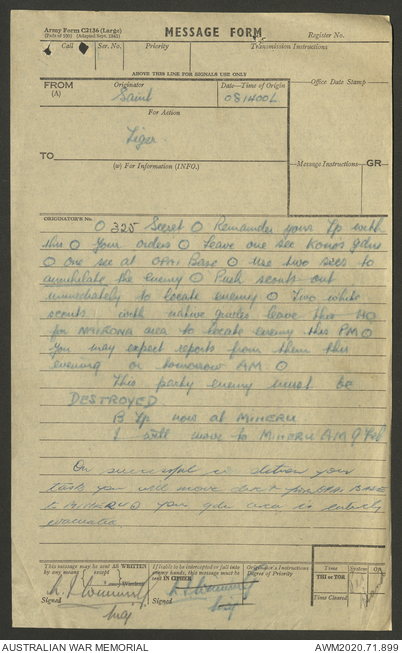 Army Form C2136 (Large)
MESSAGE FORM
Register No.
(Pads of 100) (Adapted Sept. 1943)
Call
Ser. No.
Priority
Transmission Instructions
ABOVE THIS LINE FOR SIGNALS USE ONLY
FROM
(A)
Originator
Saint
Date—Time of Origin
081400L
Office Date Stamp
For Action
Tiger
TO
(w) For Information (INFO.)
Message Instructions
GR
ORIGINATOR'S No.
O 325 Secret O Remainder your Tp with
this O Your orders O Leave one sec Kono's gdns
O one sec at Base O Use two secs to
annihilate the enemy O Push scouts out
immediately to locate enemy O Two white
scouts with native guides leave this HQ
for NAIRONA area to locate enemy this PM O
You may expect reports from them this
evening or tomorrow AM O
This party enemy must be
DESTROYED
B Tp now at MINERU
I will move to MINERU AM 9 Feb
On successful your
task you will move direct from BASE
to MINERU O your gdn area is entirely
evacuated
This message may be sent AS WRITTEN
by any means
Signed
If liable to be intercepted or fall into
enemy hands, this message must be
sent IN CIPHER
Signed
Originator's Instructions
Degree of Priority
Time
System
Op.
THI or TOR
Time Cleared
AUSTRALIAN WAR MEMORIAL
AWM2020.71.899